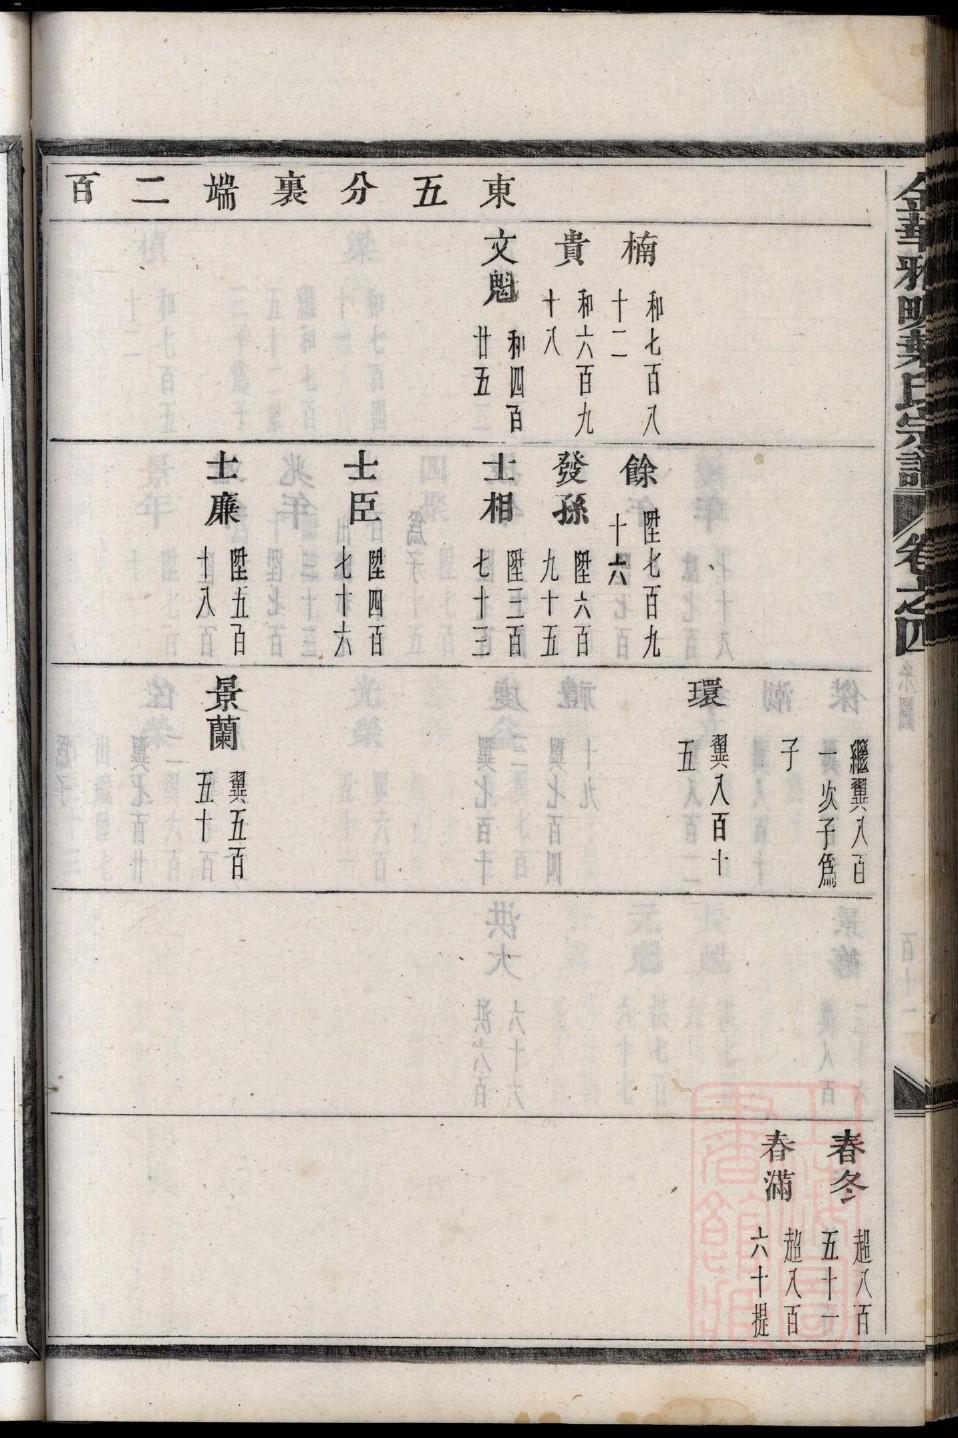 東五分裏端二百
楠 和七百八十二
貴 和六百九十八
文魁 和四百廿五
餘 陞七百九十六
發孫 陞六百九十五
士相 陞三百七十三
士臣 陞四百七十六
士廉 陞五百十八
繼翼八百一次子爲子
環 翼八百十五
景蘭 翼五百五十
春冬 超八百五十一
春滿 超八百六十提
氏宗譜 卷之四